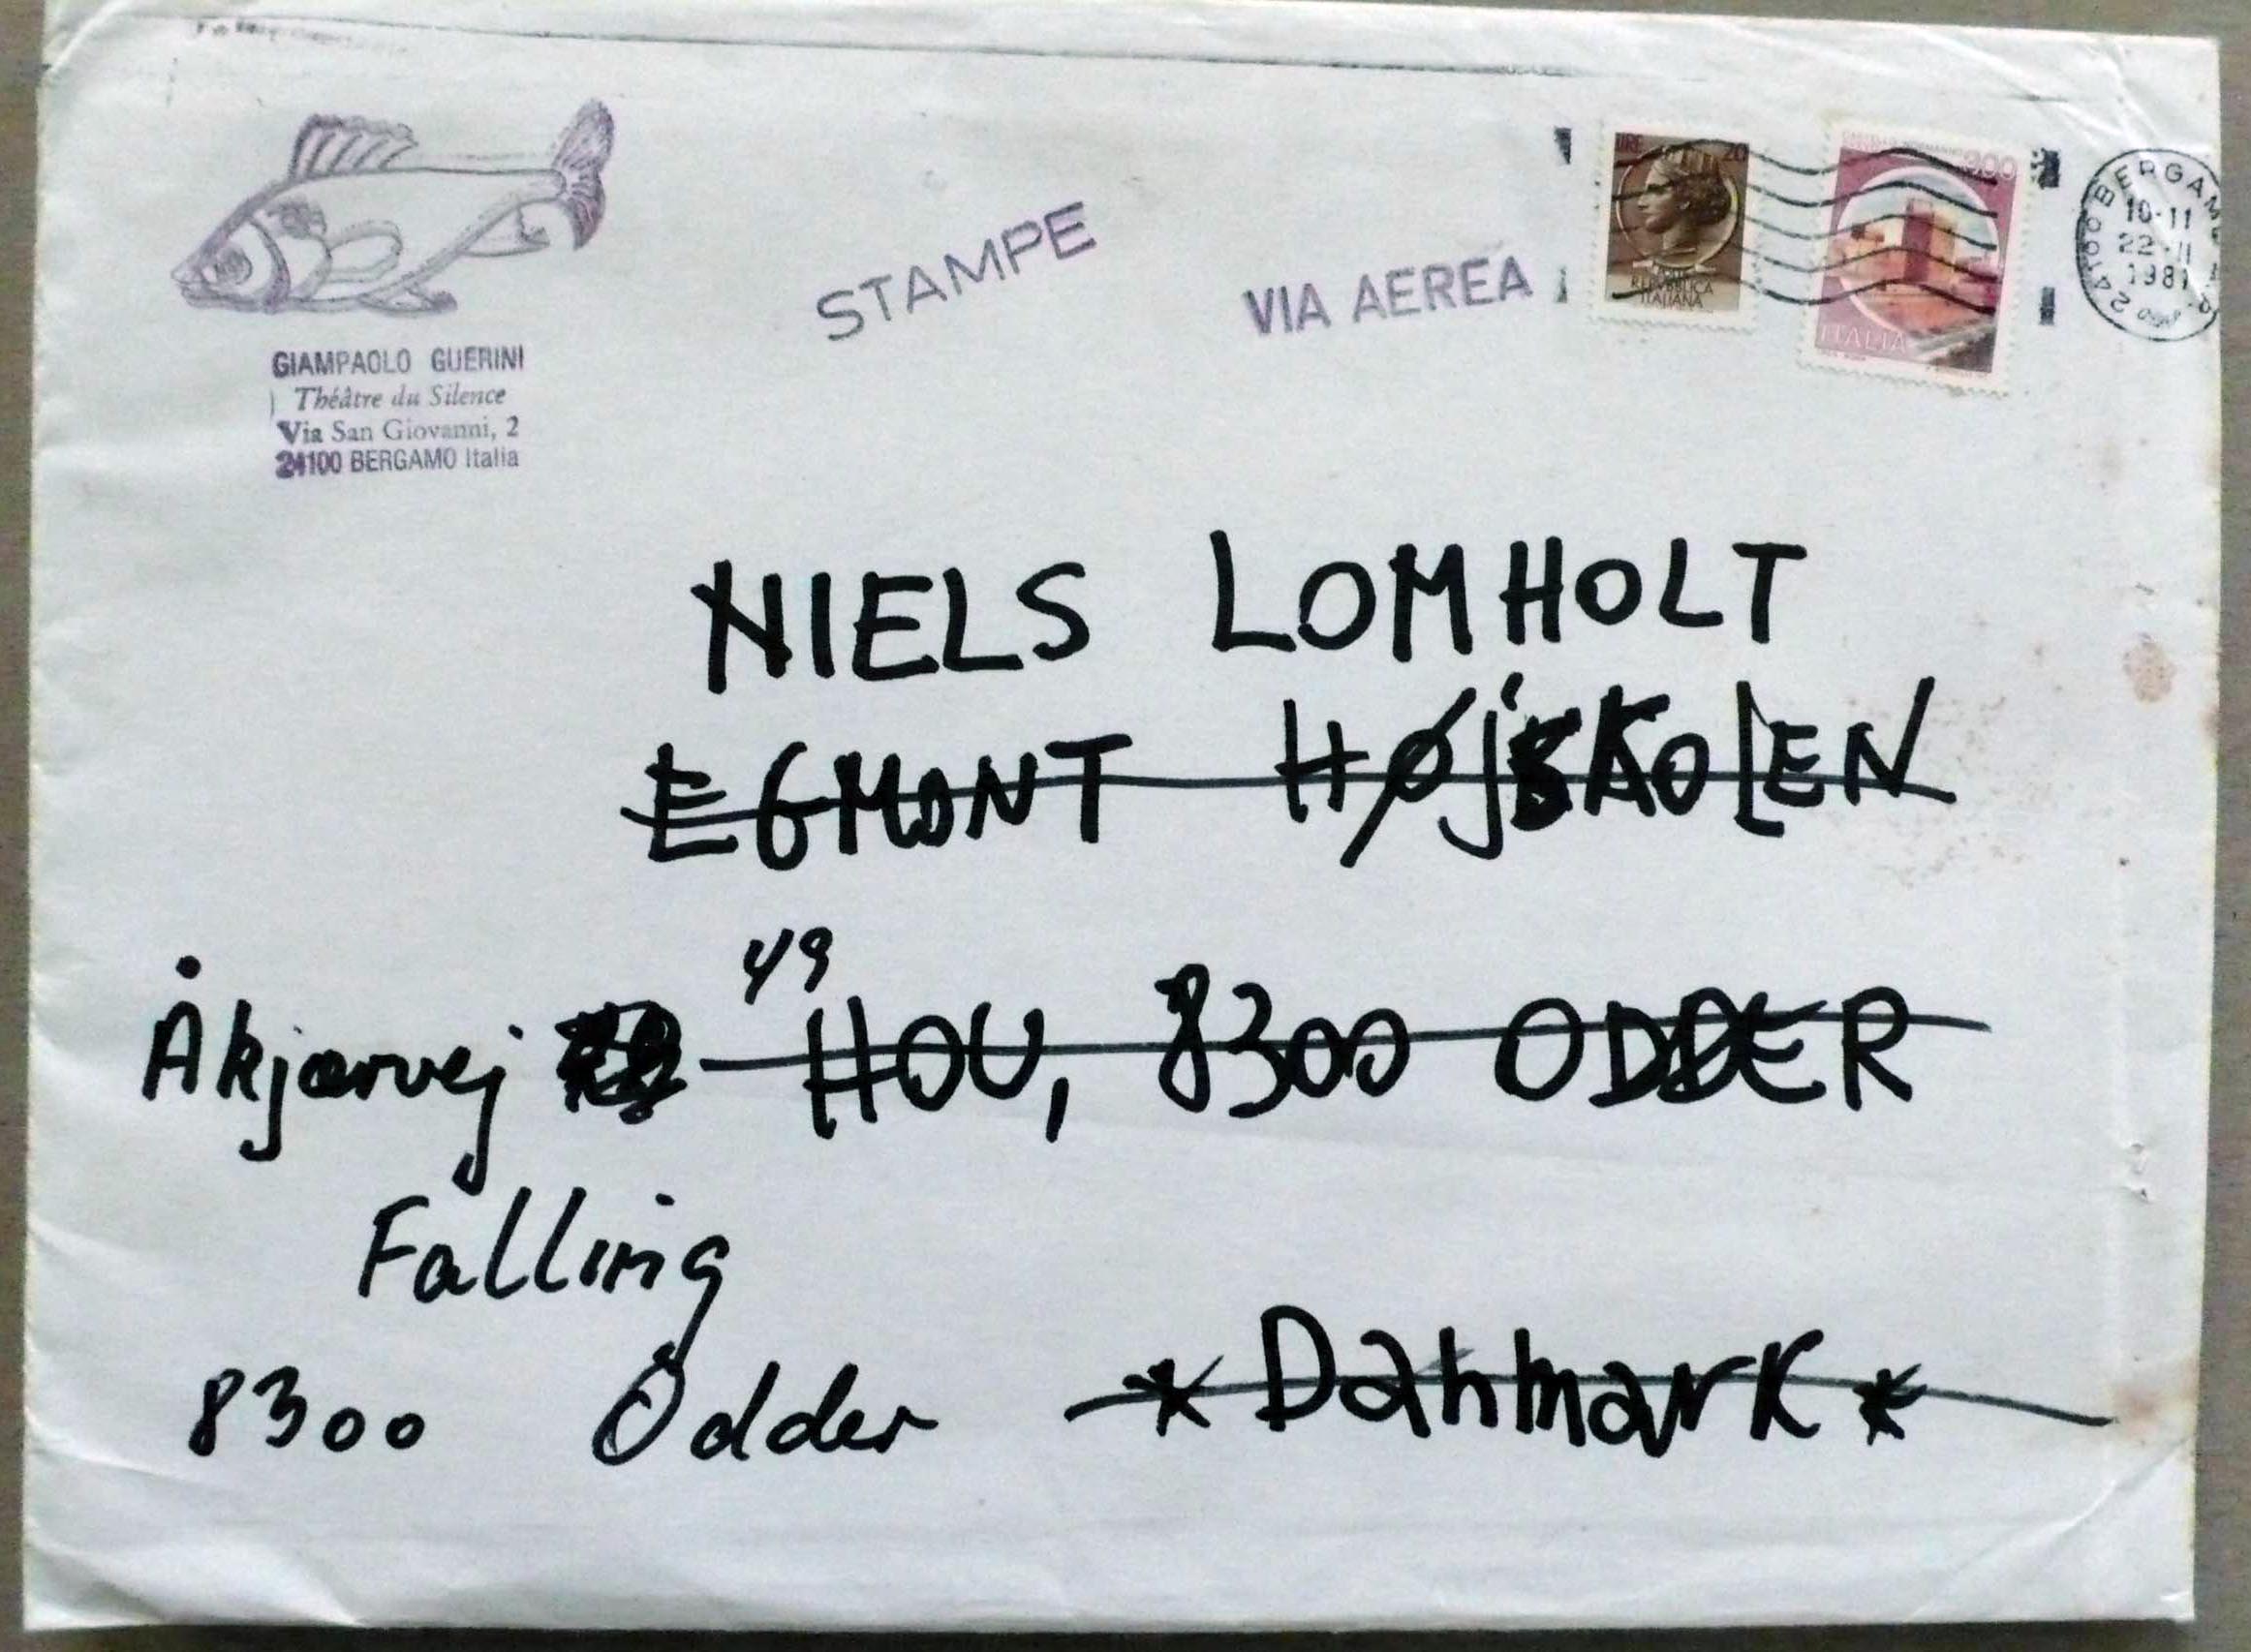 GIAMPAOLO GUERINI
Théâtre du Silence
Via San Giovanni, 2
24100 BERGAMO Italia
STAMPE
VIA AEREA
LIRE 20
POSTE
REPVBBLICA
ITALIANA
300
ITALIA
24100 BERGAM
10-11
22-11
1981
NIELS LOMHOLT
EGMONT HØJSKOLEN
49
Åkjærvej HOU, 8300 ODDER
Falling
8300 Odder * Danmark *